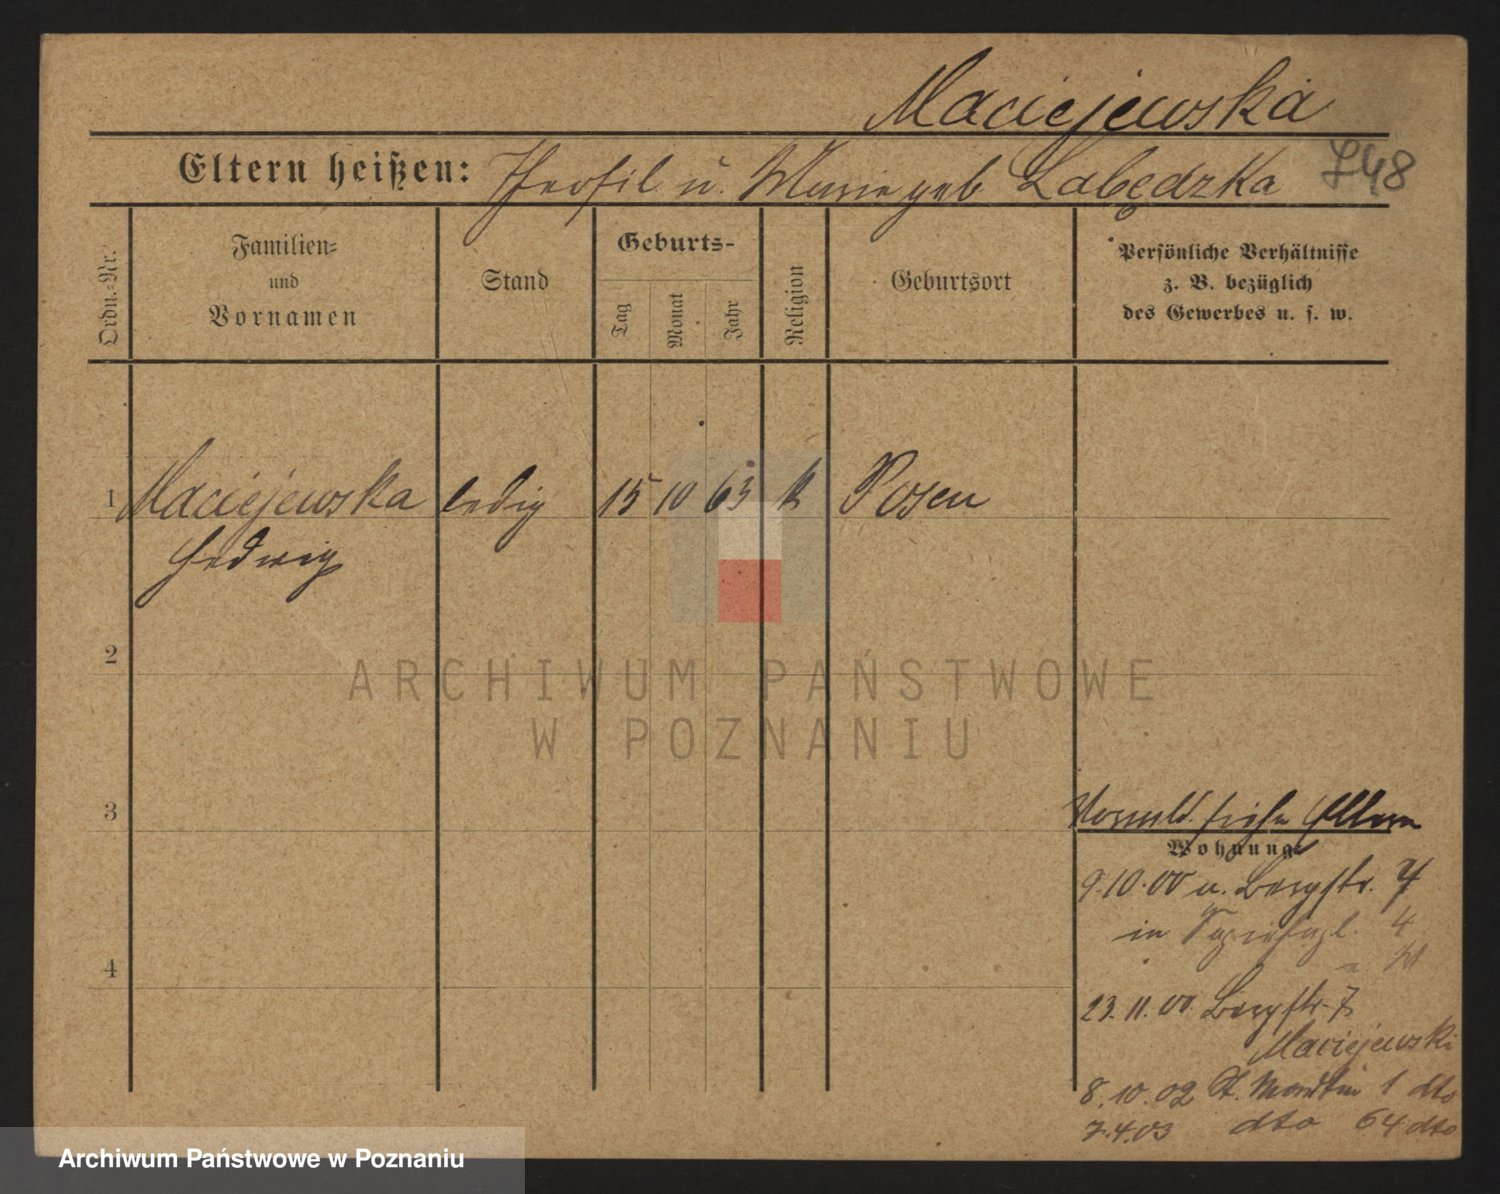 Maciejewska
Eltern heißen: Theofil u. Marie geb Łabędzka
748
Ordn.-Nr.
Familien-
und
Vornamen
Stand
Geburts-
Tag
Monat
Jahr
Religion
Geburtsort
Persönliche Verhältnisse
z. B. bezüglich
des Gewerbes u. s. w.
1 Maciejewska ledig 15 10 63 k Posen
Hedwig
2
3
4
siehe Eltern
Wohnung
9.10.00 u. Bergstr. 7
in 4
23.11.00 Bergstr. 7
Maciejewski
8.10.02 St. Martin 1 dto
7.4.03 dto 64 dto
ARCHIWUM PAŃSTWOWE
W POZNANIU
Archiwum Państwowe w Poznaniu